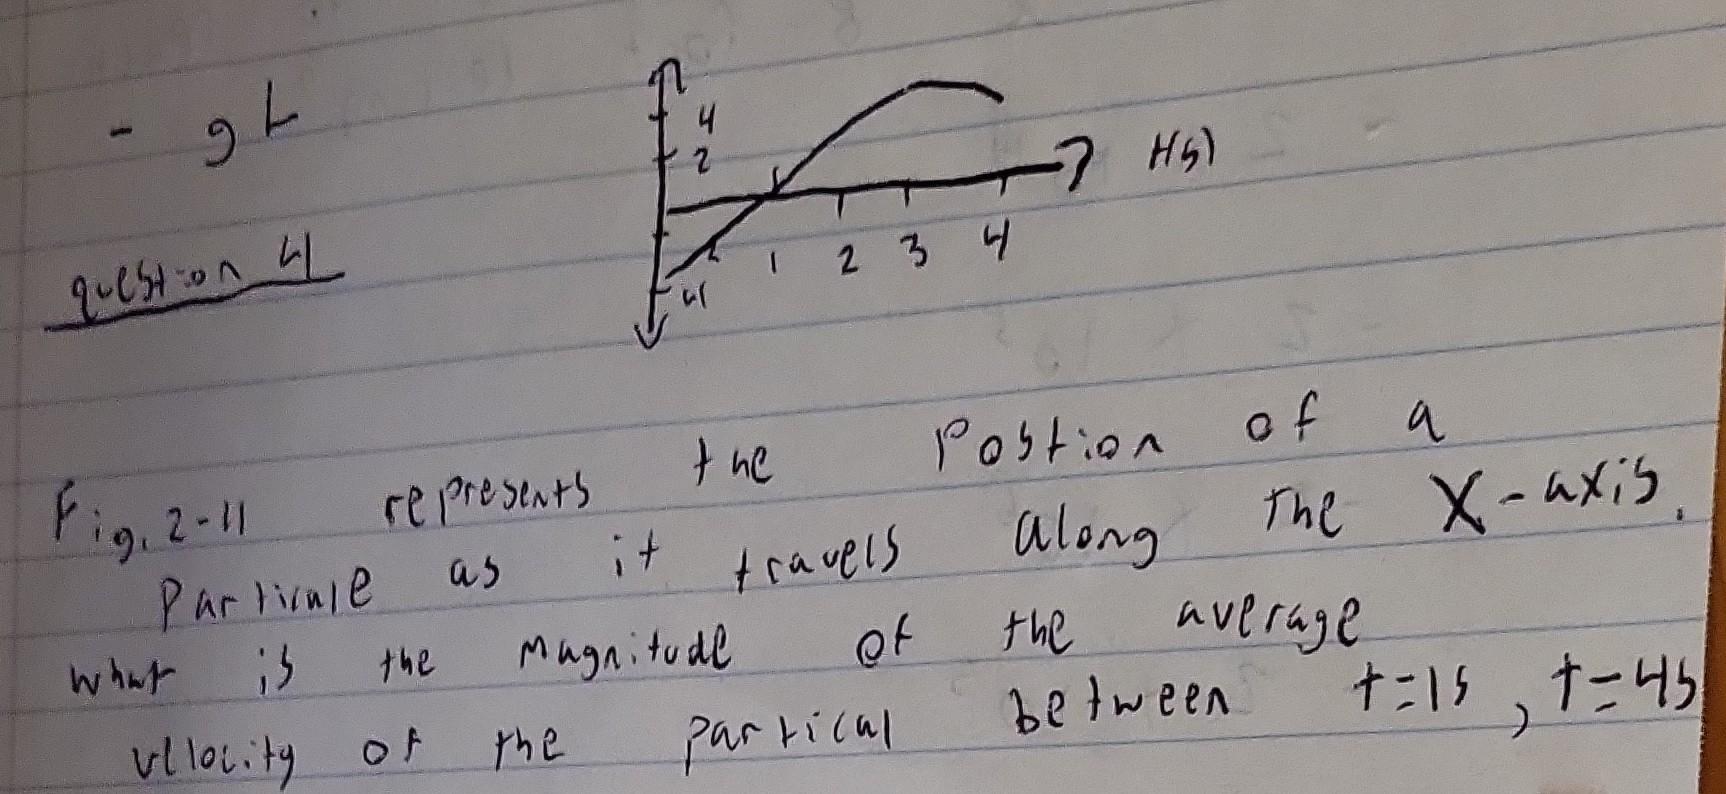 - gt
4
2
t(s)
1 2 3 4
-4
question 4
Fig. 2-11 represents the Postion of a
Particale as it travels along The X-axis.
what is the magnitude of the average
velocity of the partical between t=1s, t=4s